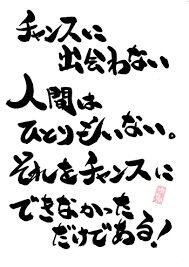 チャンスに
出会わない
人間は
ひとりもいない。
それをチャンスに
できなかった
だけである!